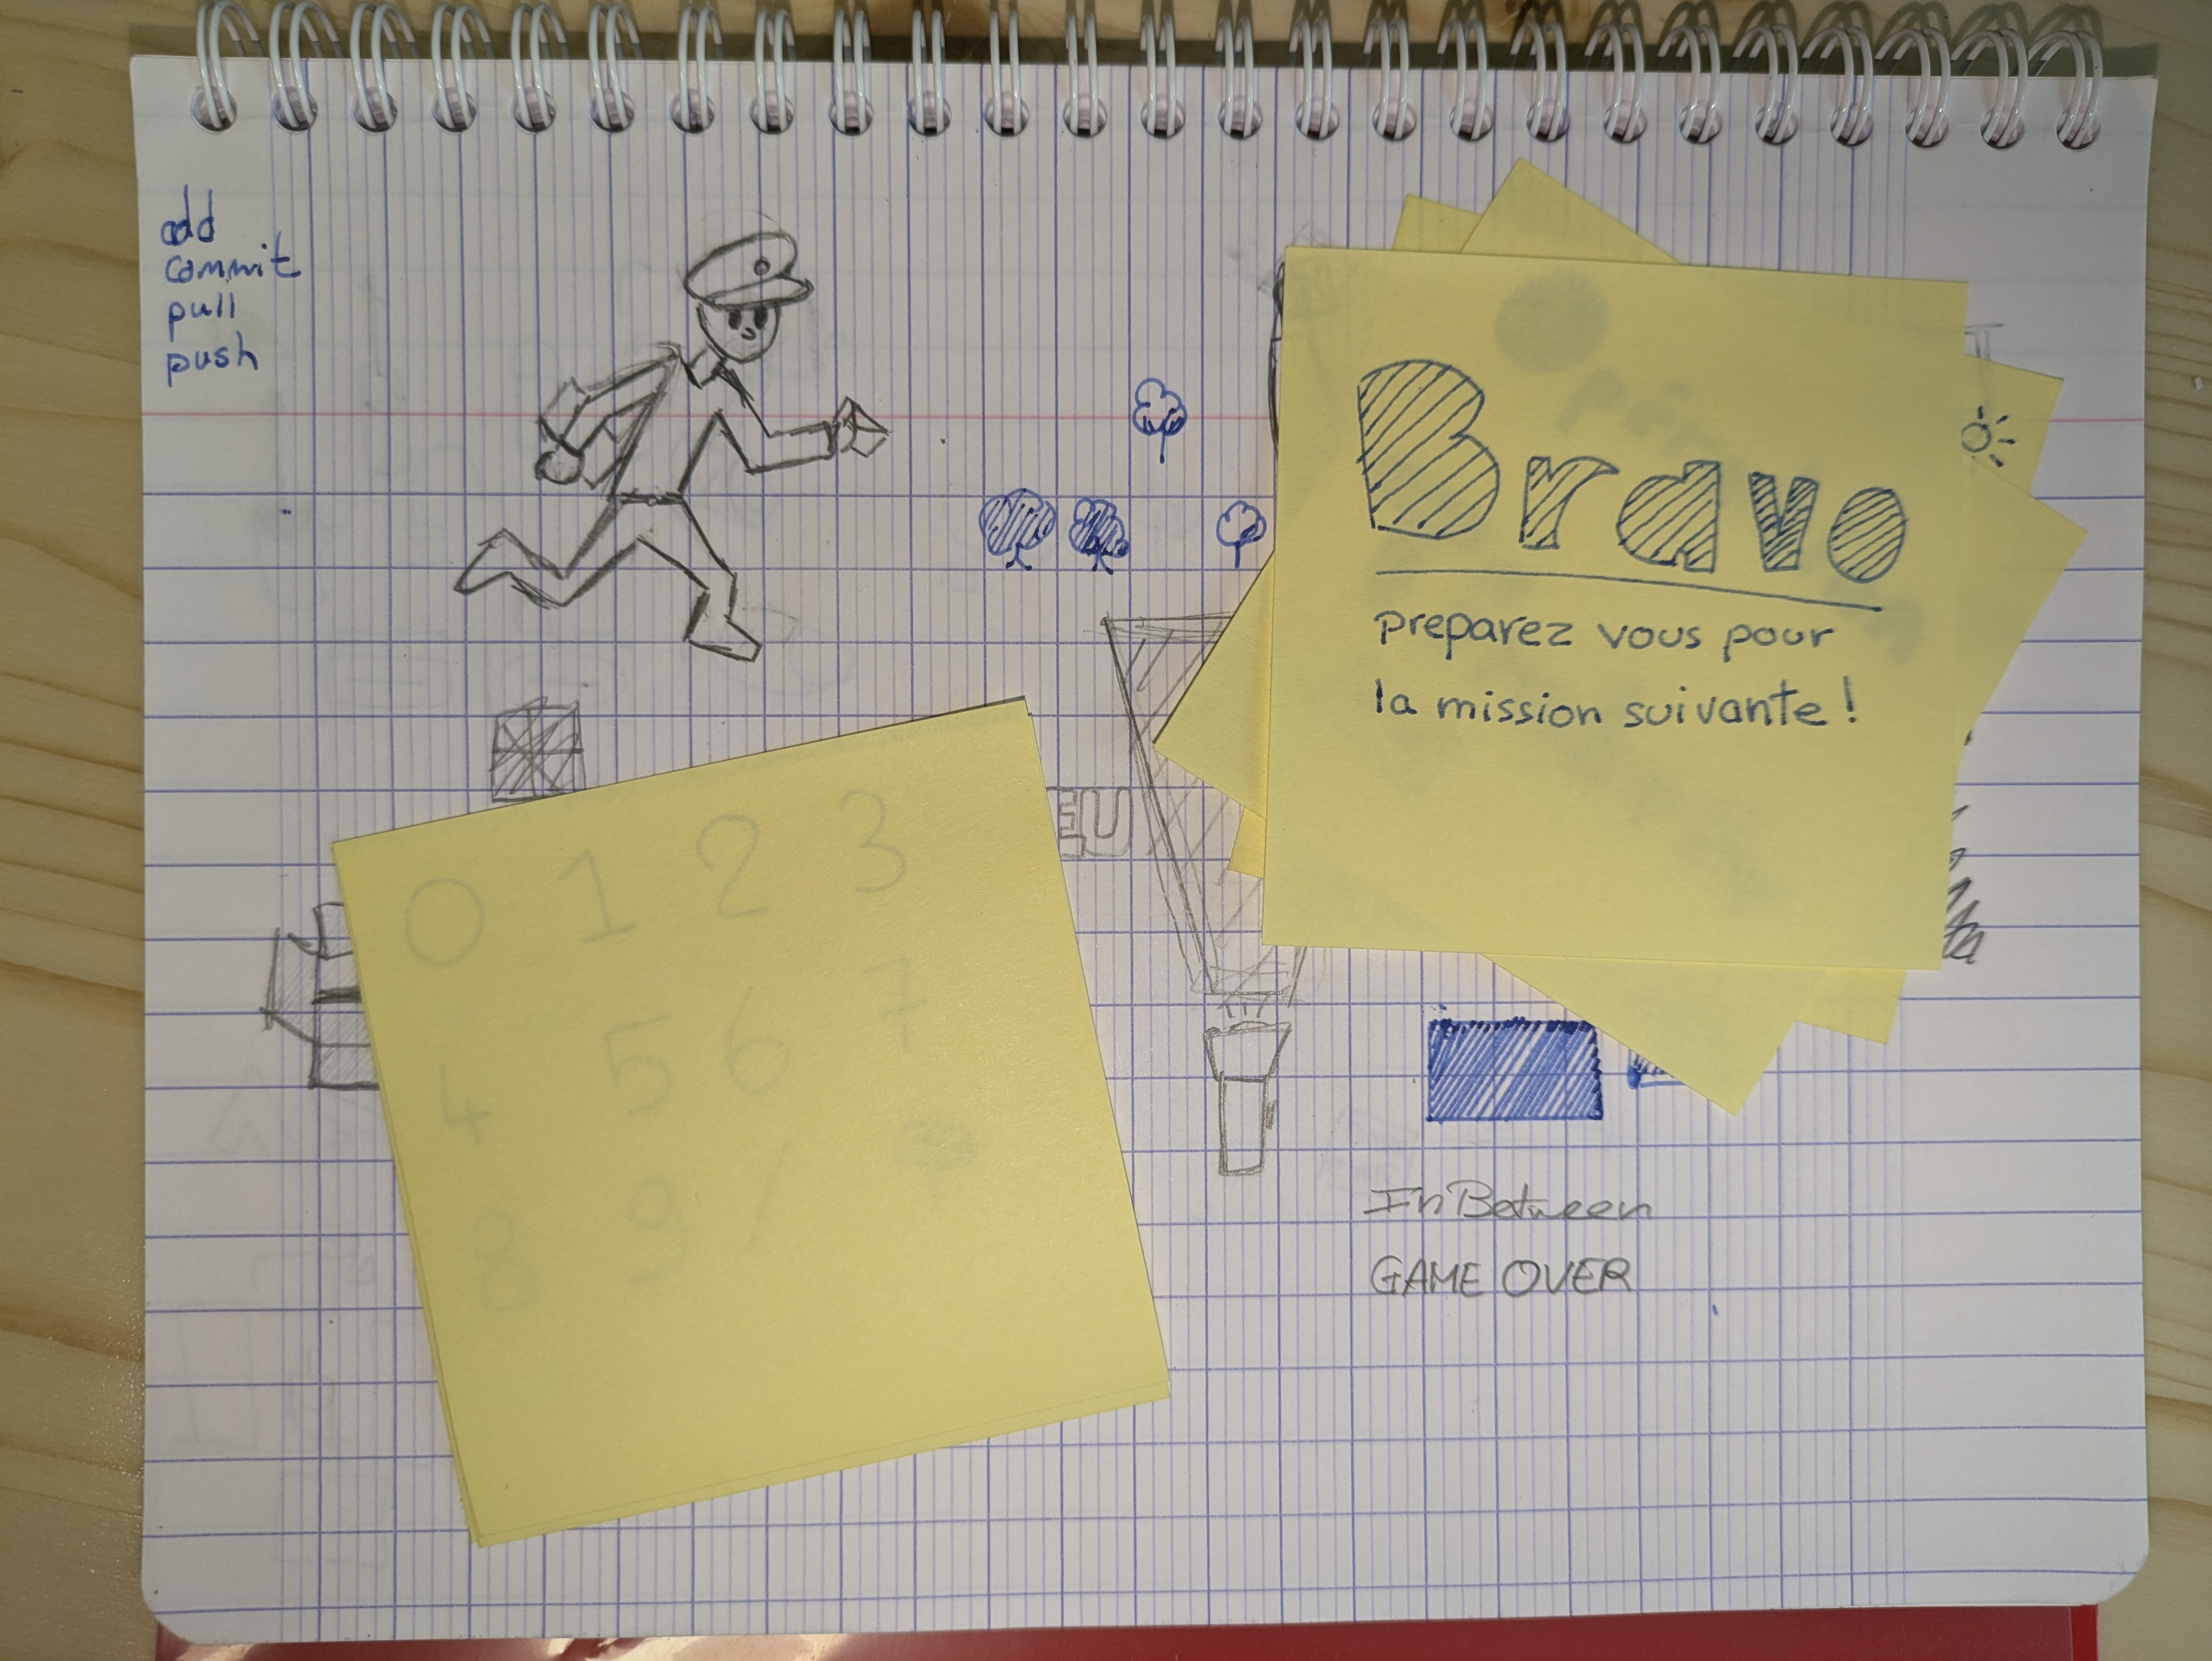 add
commit
pull
push
Bravo
preparez vous pour
la mission suivante !
EU
0 1 2 3
4 5 6 7
8 9 /
InBetween
GAME OVER